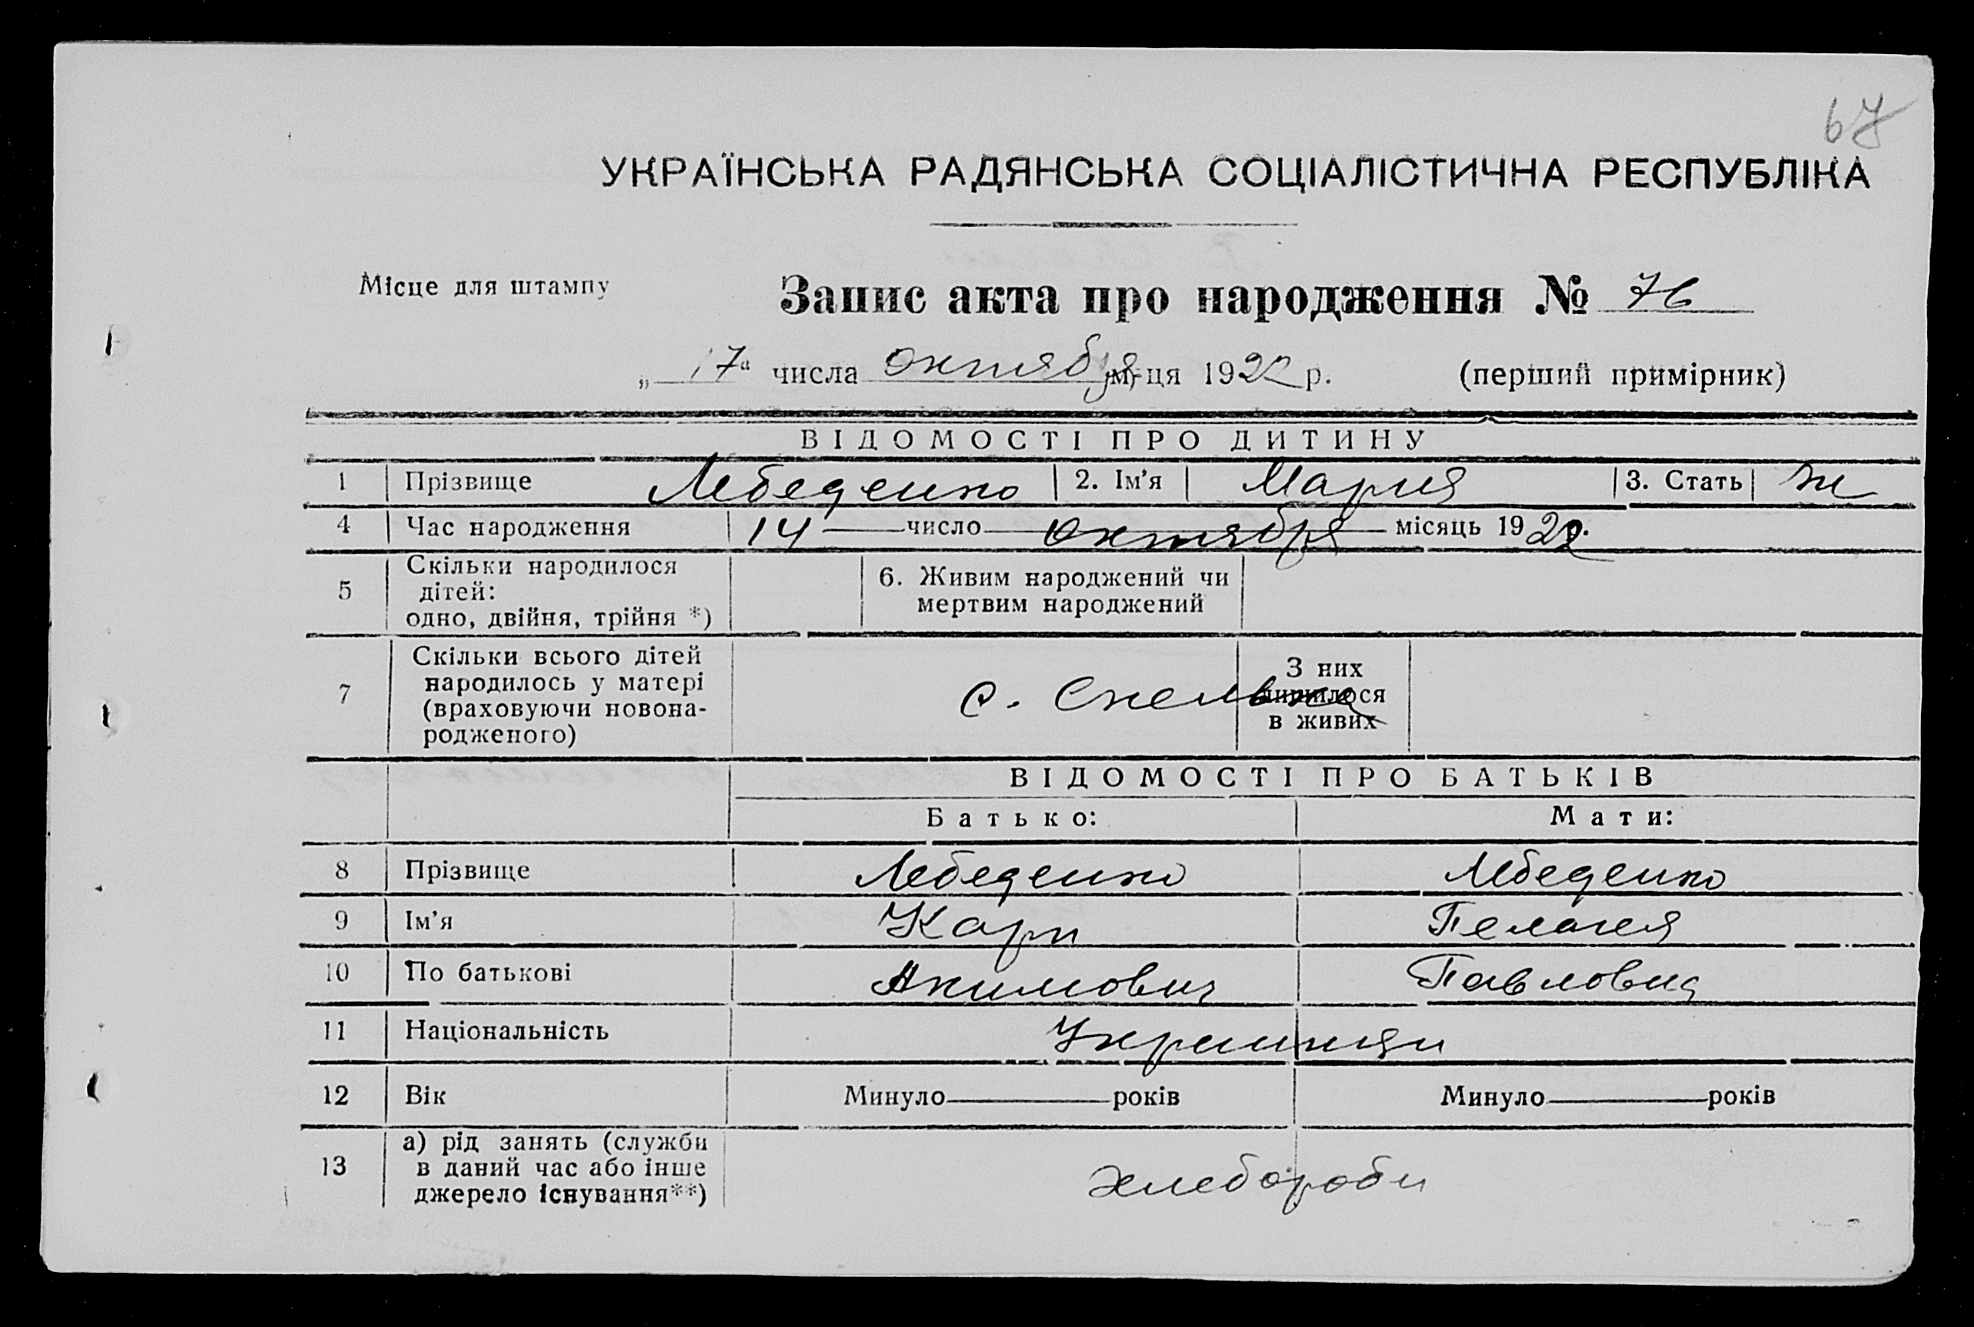 67
УКРАЇНСЬКА РАДЯНСЬКА СОЦІАЛІСТИЧНА РЕСПУБЛІКА
Місце для штампу
Запис акта про народження № 76
„ 17 “ числа октября м-ця 1922 р. (перший примірник)
ВІДОМОСТІ ПРО ДИТИНУ
1 Прізвище Лебеденко 2. Ім’я Мария 3. Стать ж
4 Час народження 14 число октября місяць 1922 р.
5 Скільки народилося
дітей:
одно, двійня, трійня *)
6. Живим народжений чи
мертвим народжений
7 Скільки всього дітей
народилось у матері
(враховуючи новона-
родженого)
с. Скелька
З них
лишилося
в живих
ВІДОМОСТІ ПРО БАТЬКІВ
Батько: Мати:
8 Прізвище Лебеденко Лебеденко
9 Ім’я Карп Пелагея
10 По батькові Акимович Павловна
11 Національність Украинцы
12 Вік Минуло років Минуло років
13 а) рід занять (служби
в даний час або інше
джерело існування**)
хлеборобы